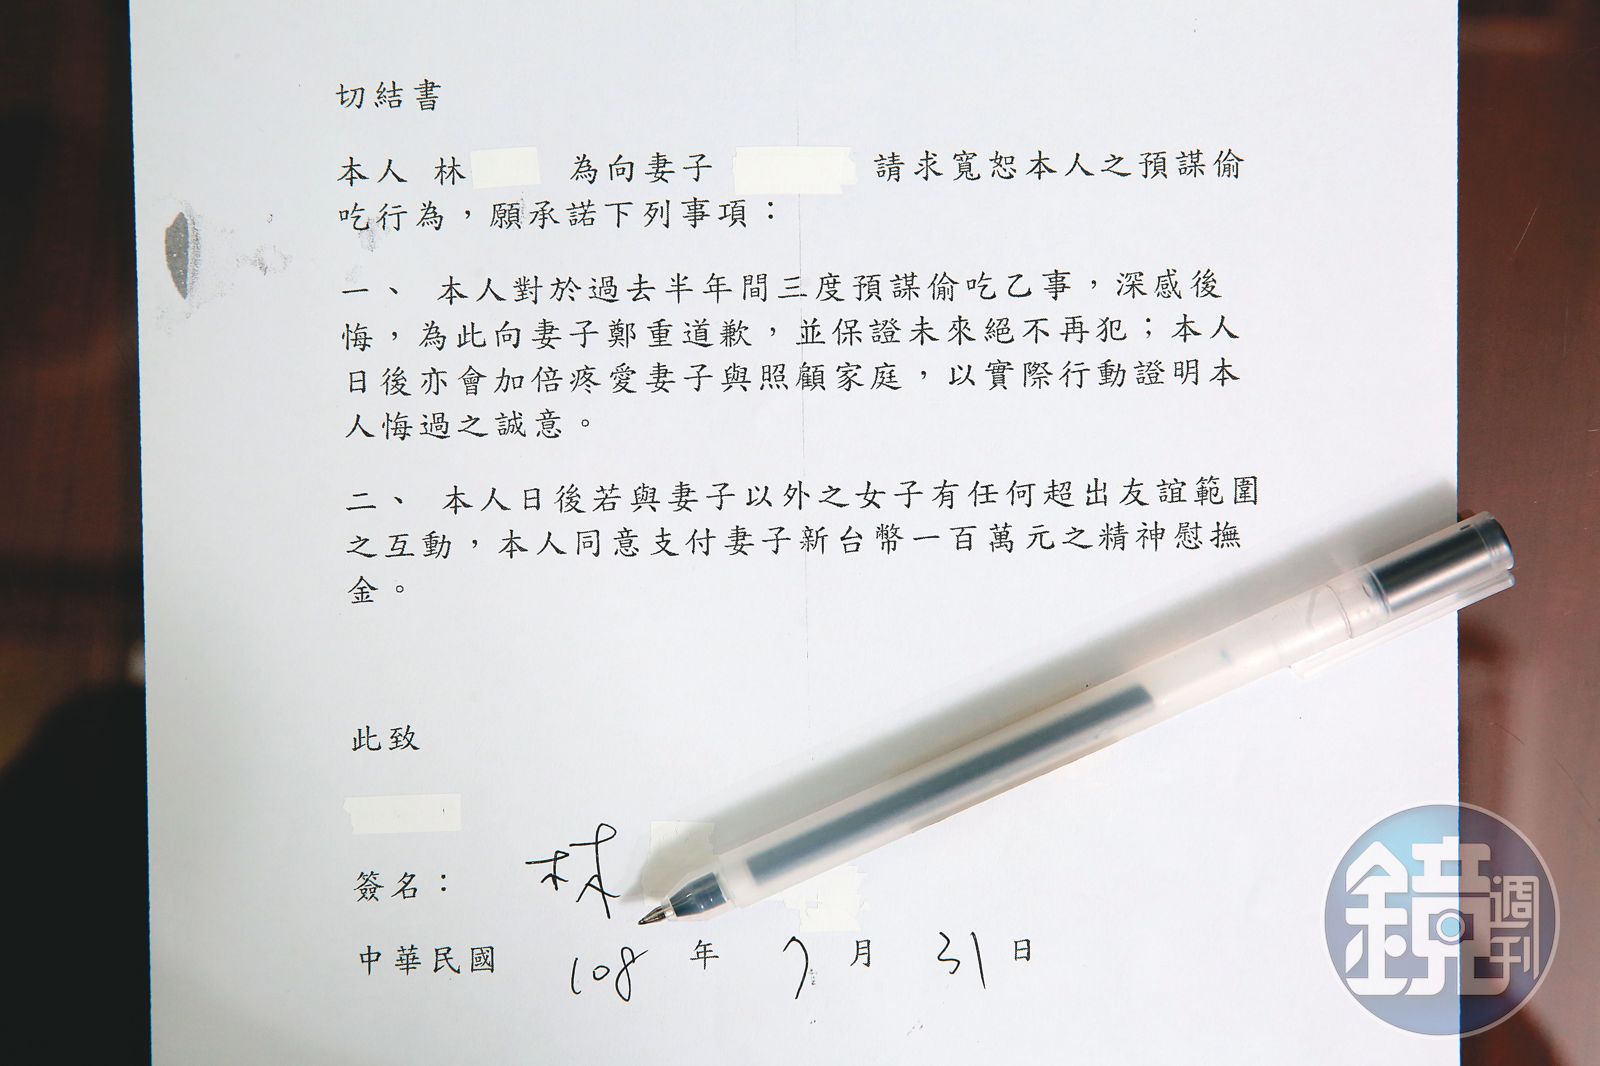 切結書
本人 林 為向妻子 請求寬恕本人之預謀偷
吃行為，願承諾下列事項：
一、 本人對於過去半年間三度預謀偷吃乙事，深感後
悔，為此向妻子鄭重道歉，並保證未來絕不再犯；本人
日後亦會加倍疼愛妻子與照顧家庭，以實際行動證明本
人悔過之誠意。
二、 本人日後若與妻子以外之女子有任何超出友誼範圍
之互動，本人同意支付妻子新台幣一百萬元之精神慰撫
金。
此致
簽名： 林
中華民國 108 年 7 月 31 日
鏡週刊